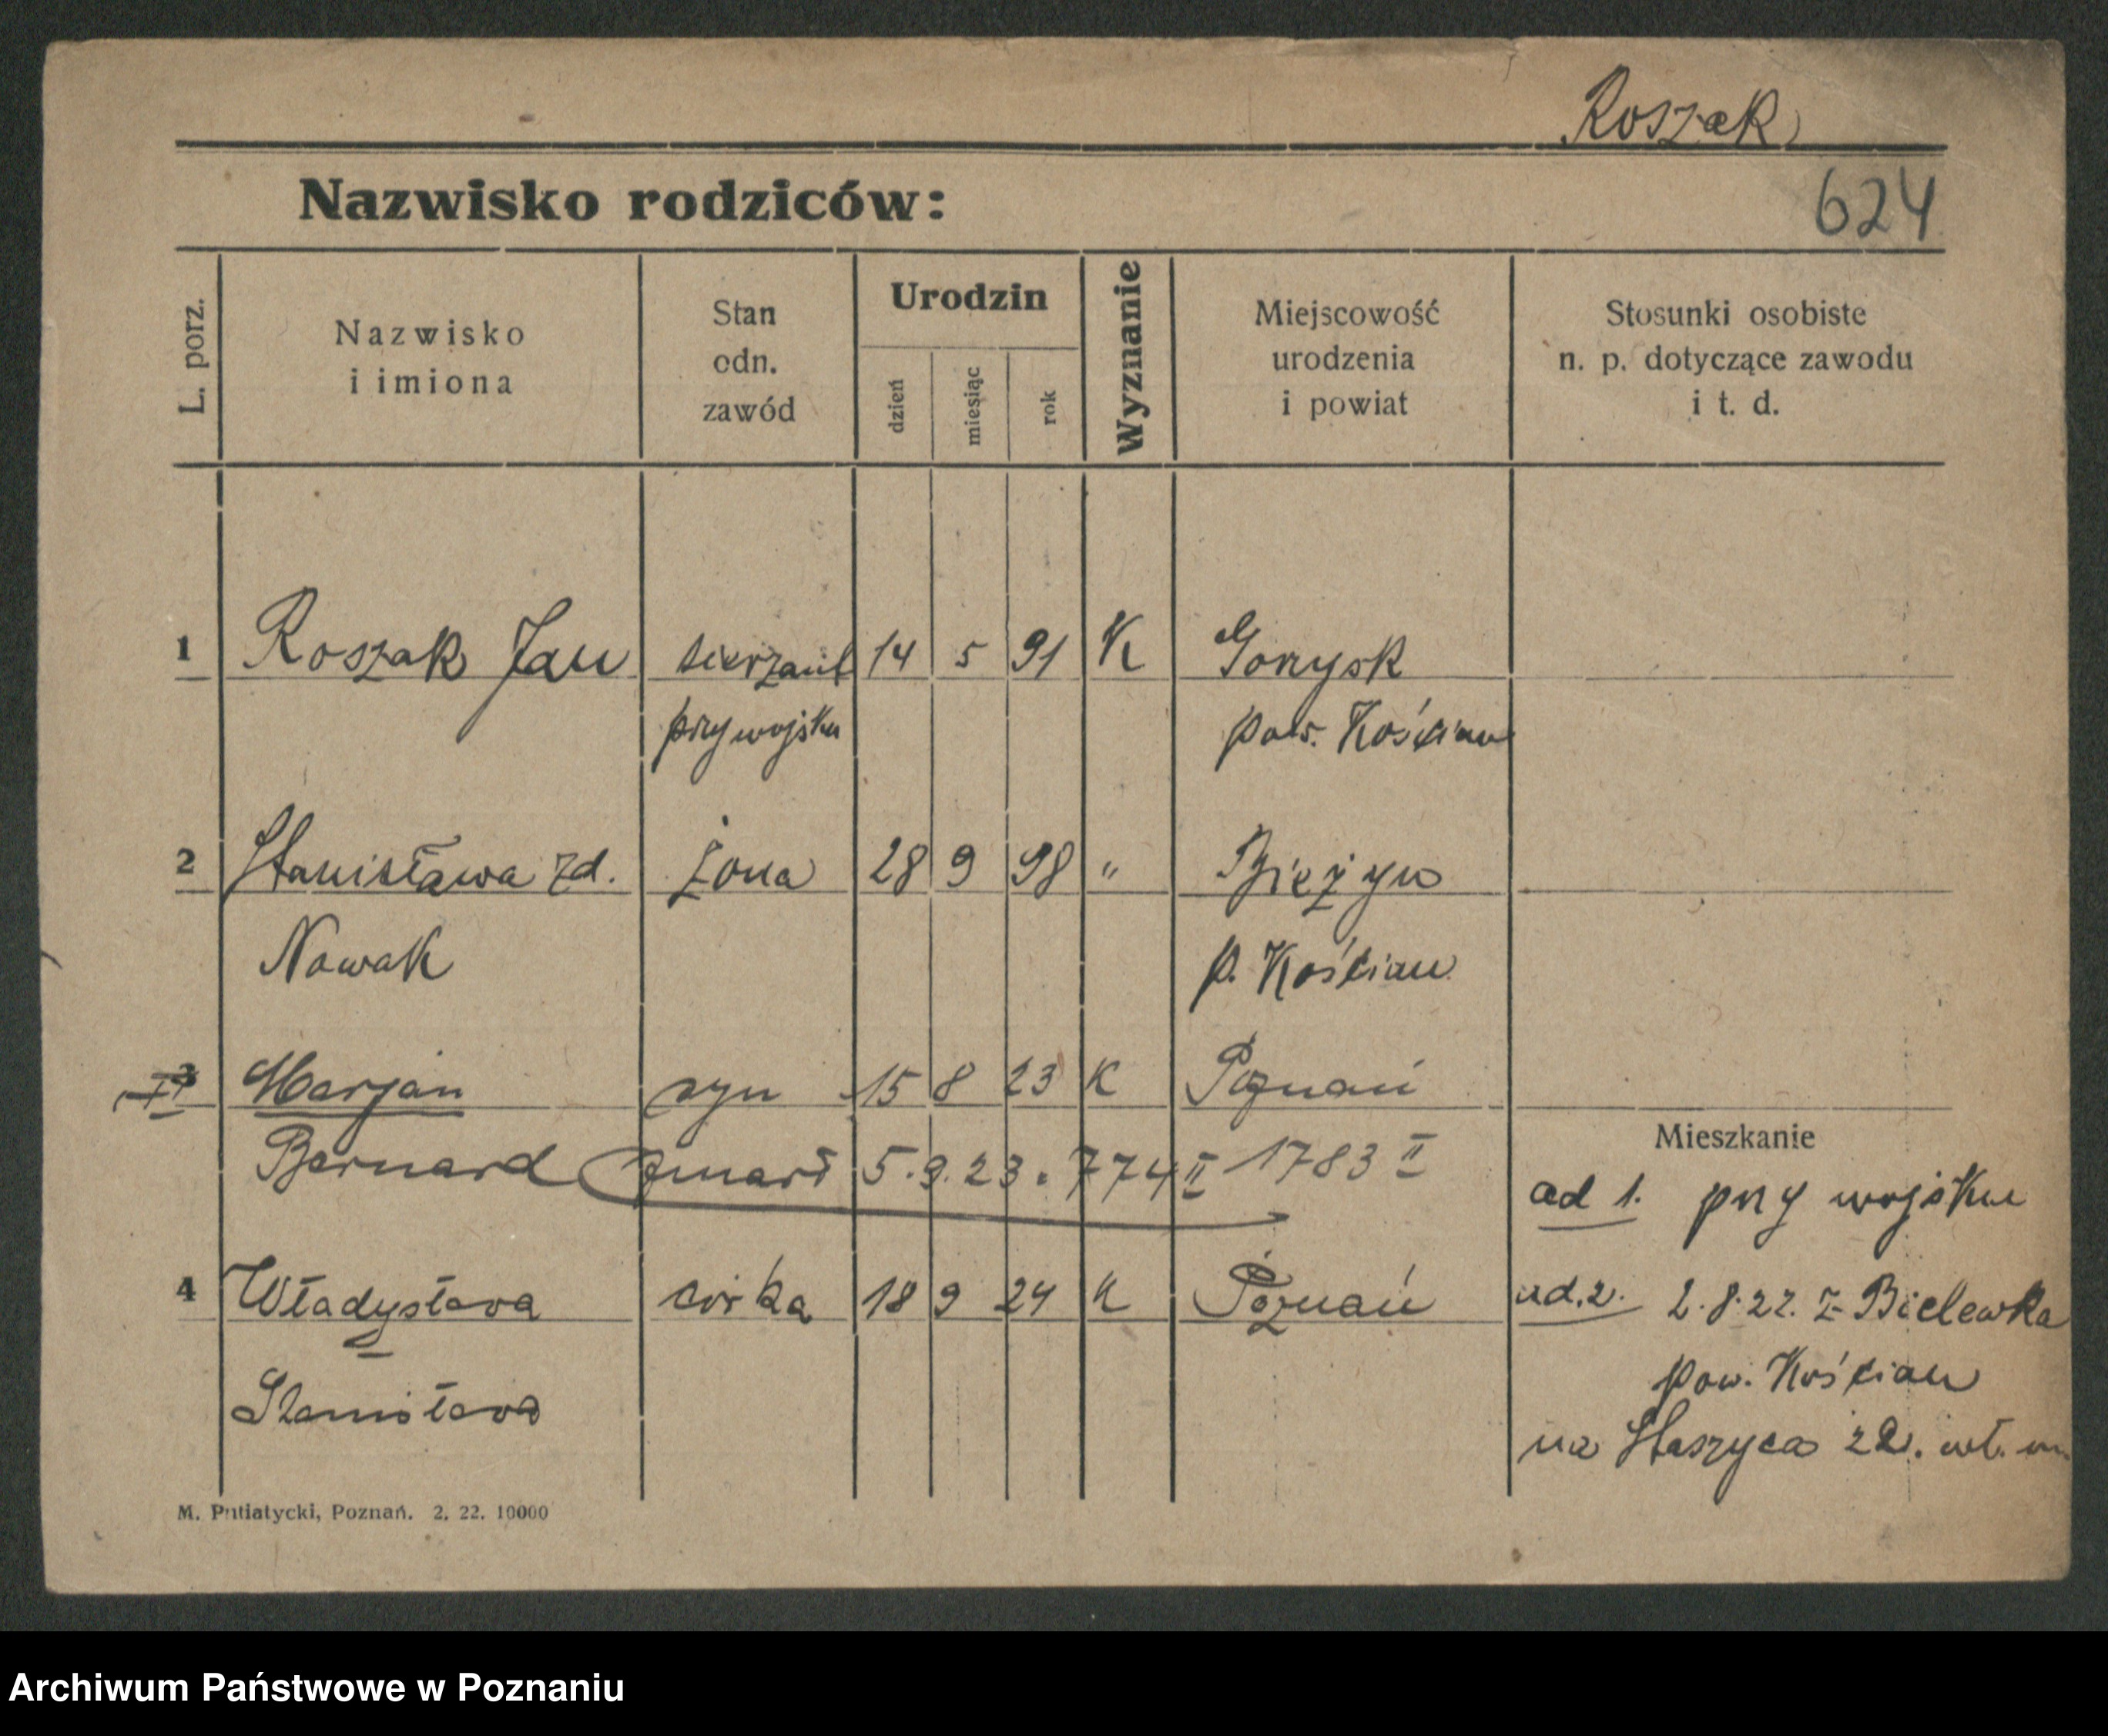 Roszak
Nazwisko rodziców:
624
L. porz.
Nazwisko
i imiona
Stan
odn.
zawód
Urodzin
dzień
miesiąc
rok
Wyznanie
Miejscowość
urodzenia
i powiat
Stosunki osobiste
n. p. dotyczące zawodu
i t. d.
1 Roszak Jan sierzant 14 5 91 K
przy wojsku pow. Kościan
2 Stanisława zd. żona 28 9 98 "
Nowak p. Kościan
3 Marjan syn 15 8 23 K Poznań
Bernard zmarł 5.9.23. 774 II 1783 II
4 Władysława córka 18 9 24 K Poznań
Stanisława
Mieszkanie
ad 1. przy wojsku
ad. 2. 2.8.22. z Bielewka
pow. Kościan
na Staszyca
M. Putiatycki, Poznań. 2. 22. 10000
Archiwum Państwowe w Poznaniu